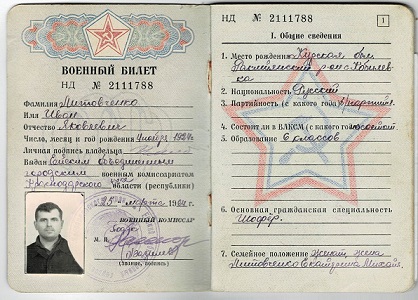 ВОЕННЫЙ БИЛЕТ
НД № 2111788
Фамилия Литовченко
Имя Иван
Отчество Яковлевич
Число, месяц и год рождения 1924г
Личная подпись владельца
Выдан объединенным
городским военным комиссариатом
Краснодарского области (республики)
„25" марта 1964 г.
ВОЕННЫЙ КОМИССАР
М. П.
(Звание, подпись)
НД № 2111788
1
I. Общие сведения
1. Место рождения Курская обл
Ракитянский р-он с.
2. Национальность Русский
3. Партийность (с какого года)
4. Состоит ли в ВЛКСМ (с какого года)
5. Образование 6 классов
6. Основная гражданская специальность
Шофёр.
7. Семейное положение женат, жена
Литовченко Екатерина